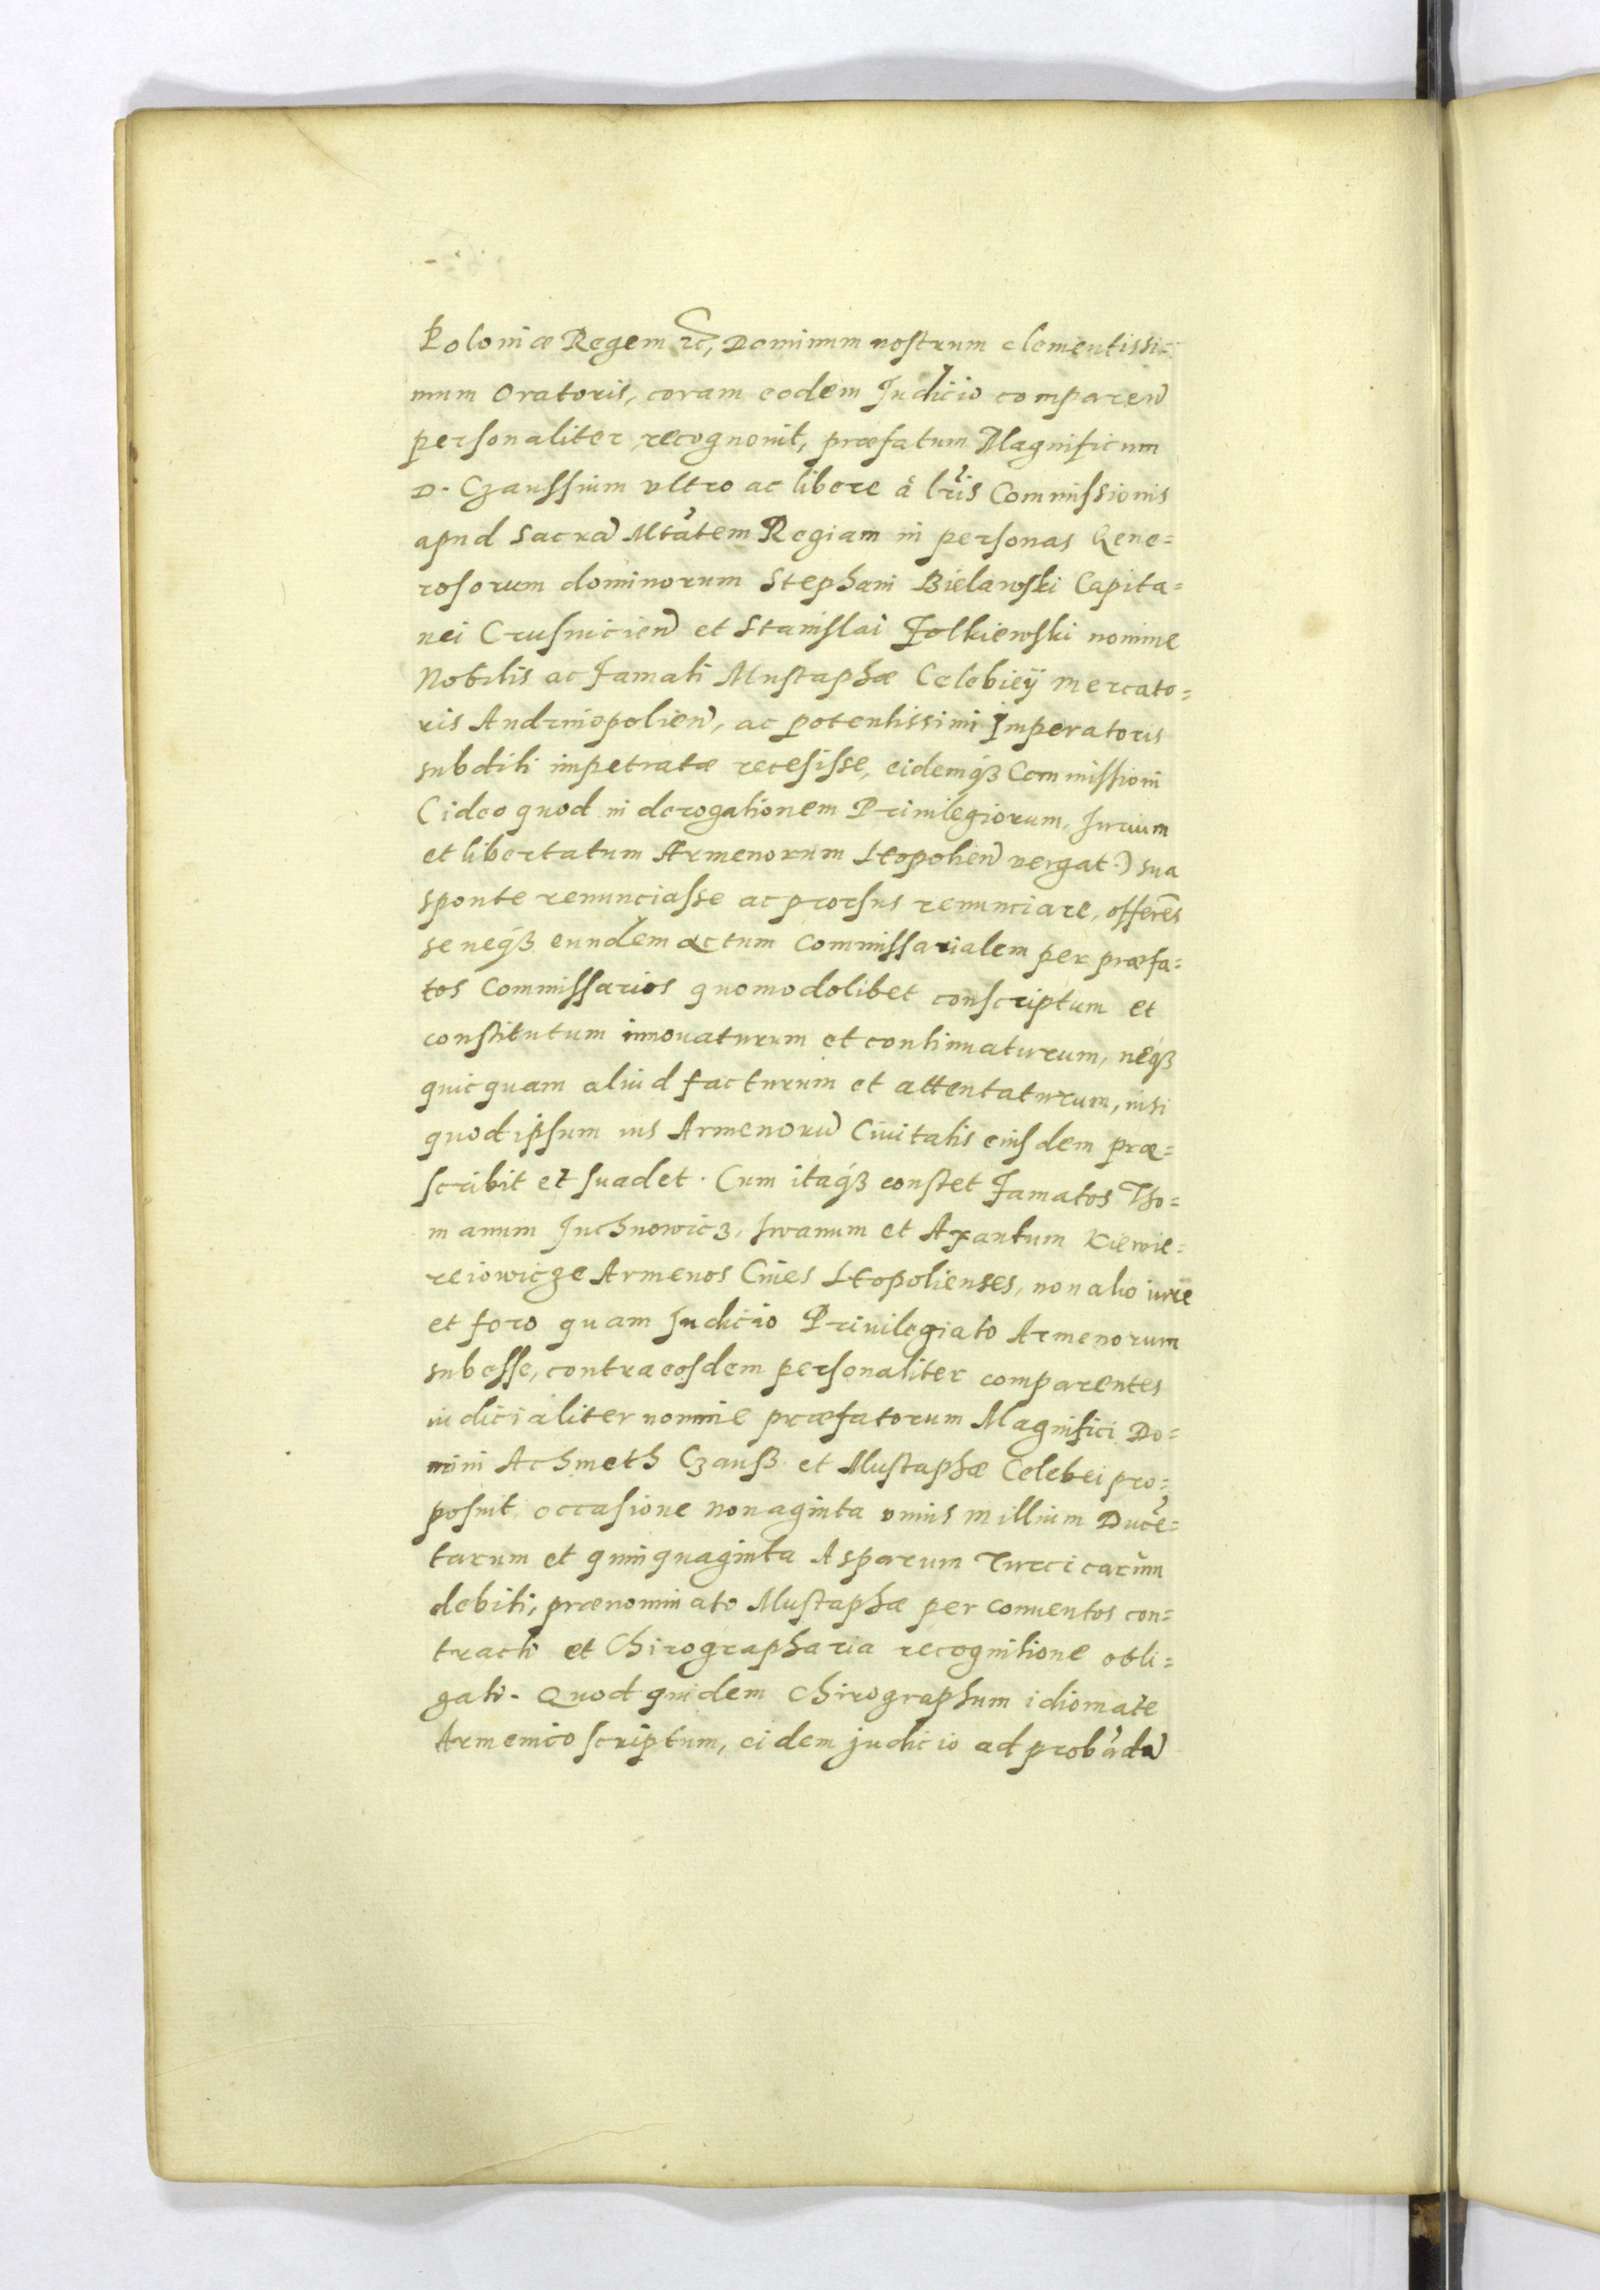 Poloniæ Regem ꝛc, Dominum nostrum clementissi=
mum Oratoris, coram eodem Judicio comparen̄
personaliter recognouit, præfatum Magnificum
D. Czaussium vltro ac libere á lr̃is Commissionis
apud Sacra᷈ Mtãtem Regiam in personas Gene=
rosorum dominorum Stephani Bielawski Capita=
nei Crusuicien̄ et Stanislai Zolkiewski nomine
Nobilis ac famati Mustaphæ Celebieÿ mercato=
ris Andrinopolien̄, ac potentissimi Imperatoris
subditi impetratæ recesisse, eidemq́ꝫ Commissioni
(ideo quod in derogationem Priuilegiorum, Jurium
et libertatum Armenorum Leopolien̄ vergat.) sua
sponte renunciasse ac prorsus renunciare, offerẽs
se neq́ꝫ eundem actum Commissarialem per præfa=
tos Commissarios quomodolibet conscriptum et
constitutum innouaturum et continuaturum, neq́ꝫ
quicquam aliud facturum et attentaturum, nisi
quod ipsum ius Armenoru᷈ Ciuitatis eiusdem præ=
scribit et suadet. Cum itaq́ꝫ constet famatos Tho=
manum Juchnowicz, Iwanum et Axantum Kiewie=
reiowicze Armenos Ciues Leopolienses, non alio iure
et foro quam Judicio Priuilegiato Armenorum
subesse, contra eosdem personaliter comparentes
iudicialiter nomine præfatorum Magnifici Do=
mini Achmeth Czauß et Mustaphæ Celebei pro=
posuit occasione nonaginta vnius millium Ducẽ=
tarum et quinquaginta Asparum Turcicarum
debiti, prænominato Mustaphæ per conuentos con=
tracti et Chirographaria recognitione obli=
gati. Quod quidem Chirographum idiomate
Armenico scriptum, eidem judicio ad probãda᷈